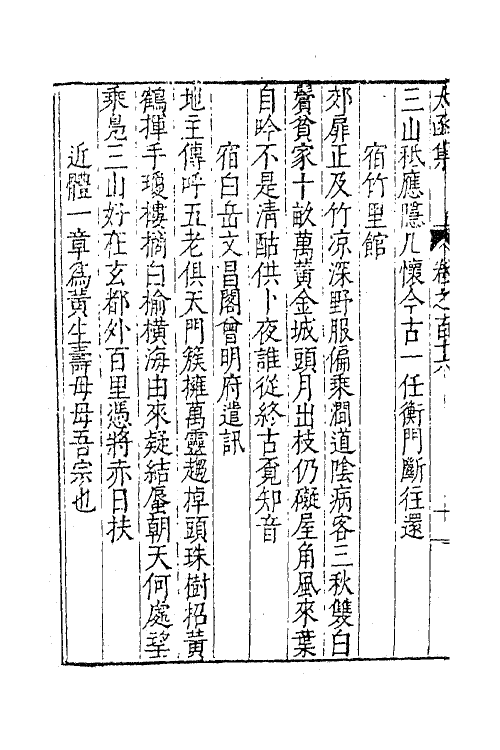 太函集 卷之百十六 十一
三山秪應隱几懷今古一任衡門斷往還
宿竹里館
郊扉正及竹凉深野服偏乘澗道陰病客三秋雙白
鬢貧家十畝萬黃金城頭月出枝仍礙屋角風來葉
自吟不是清酤供卜夜誰從終古覓知音
宿白岳文昌閣曾明府遣訊
地主傳呼五老俱天門簇擁萬靈趨棹頭珠樹招黃
鶴揮手瓊樓摘白榆橫海由來疑結蜃朝天何處望
乘鳧三山好在玄都外百里憑將赤日扶
近體一章爲黃生壽母母吾宗也